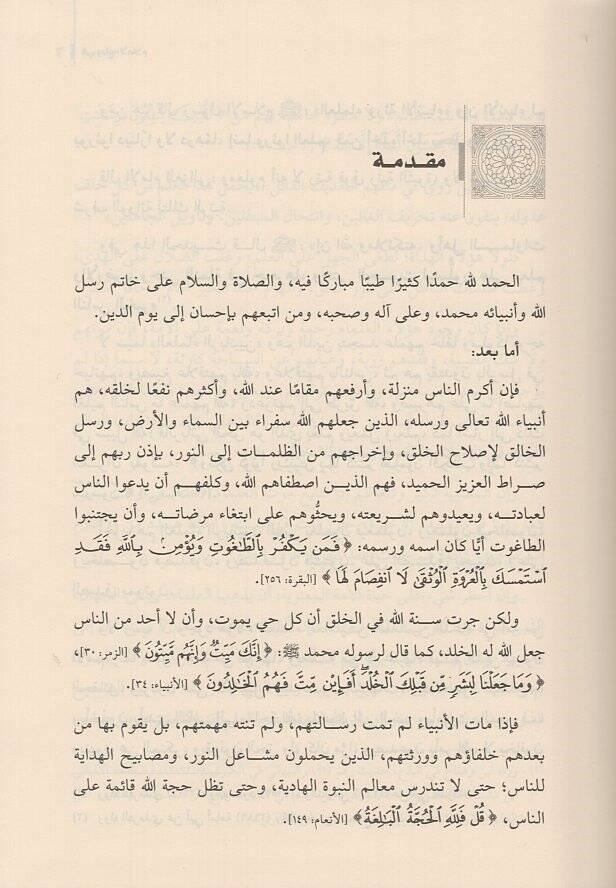 مقدمة
الحمد لله حمدًا كثيرًا طيبًا مباركًا فيه، والصلاة والسلام على خاتم رسل
الله وأنبيائه محمد، وعلى آله وصحبه، ومن اتبعهم بإحسان إلى يوم الدين.
أما بعد:
فإن أكرم الناس منزلة، وأرفعهم مقامًا عند الله، وأكثرهم نفعًا لخلقه، هم
أنبياء الله تعالى ورسله، الذين جعلهم الله سفراء بين السماء والأرض، ورسل
الخالق لإصلاح الخلق، وإخراجهم من الظلمات إلى النور، بإذن ربهم إلى
صراط العزيز الحميد، فهم الذين اصطفاهم الله، وكلفهم أن يدعوا الناس
لعبادته، ويعيدوهم لشريعته، ويحثُّوهم على ابتغاء مرضاته، وأن يجتنبوا
الطاغوت أيًّا كان اسمه ورسمه: ﴿فَمَن يَكْفُرْ بِالطَّاغُوتِ وَيُؤْمِنۢ بِاللَّهِ فَقَدِ
اسْتَمْسَكَ بِالْعُرْوَةِ الْوُثْقَىٰ لَا انفِصَامَ لَهَا﴾ [البقرة: ٢٥٦].
ولكن جرت سنة الله في الخلق أن كل حي يموت، وأن لا أحد من الناس
جعل الله له الخلد، كما قال لرسوله محمد ﷺ: ﴿إِنَّكَ مَيِّتٌ وَإِنَّهُم مَّيِّتُونَ﴾ [الزمر: ٣٠]،
﴿وَمَا جَعَلْنَا لِبَشَرٍ مِّن قَبْلِكَ الْخُلْدَ ۖ أَفَإِين مِّتَّ فَهُمُ الْخَالِدُونَ﴾ [الأنبياء: ٣٤].
فإذا مات الأنبياء لم تمت رسالتهم، ولم تنته مهمتهم، بل يقوم بها من
بعدهم خلفاؤهم وورثتهم، الذين يحملون مشاعل النور، ومصابيح الهداية
للناس؛ حتى لا تندرس معالم النبوة الهادية، وحتى تظل حجة الله قائمة على
الناس، ﴿قُلْ فَلِلَّهِ الْحُجَّةُ الْبَالِغَةُ﴾ [الأنعام: ١٤٩].